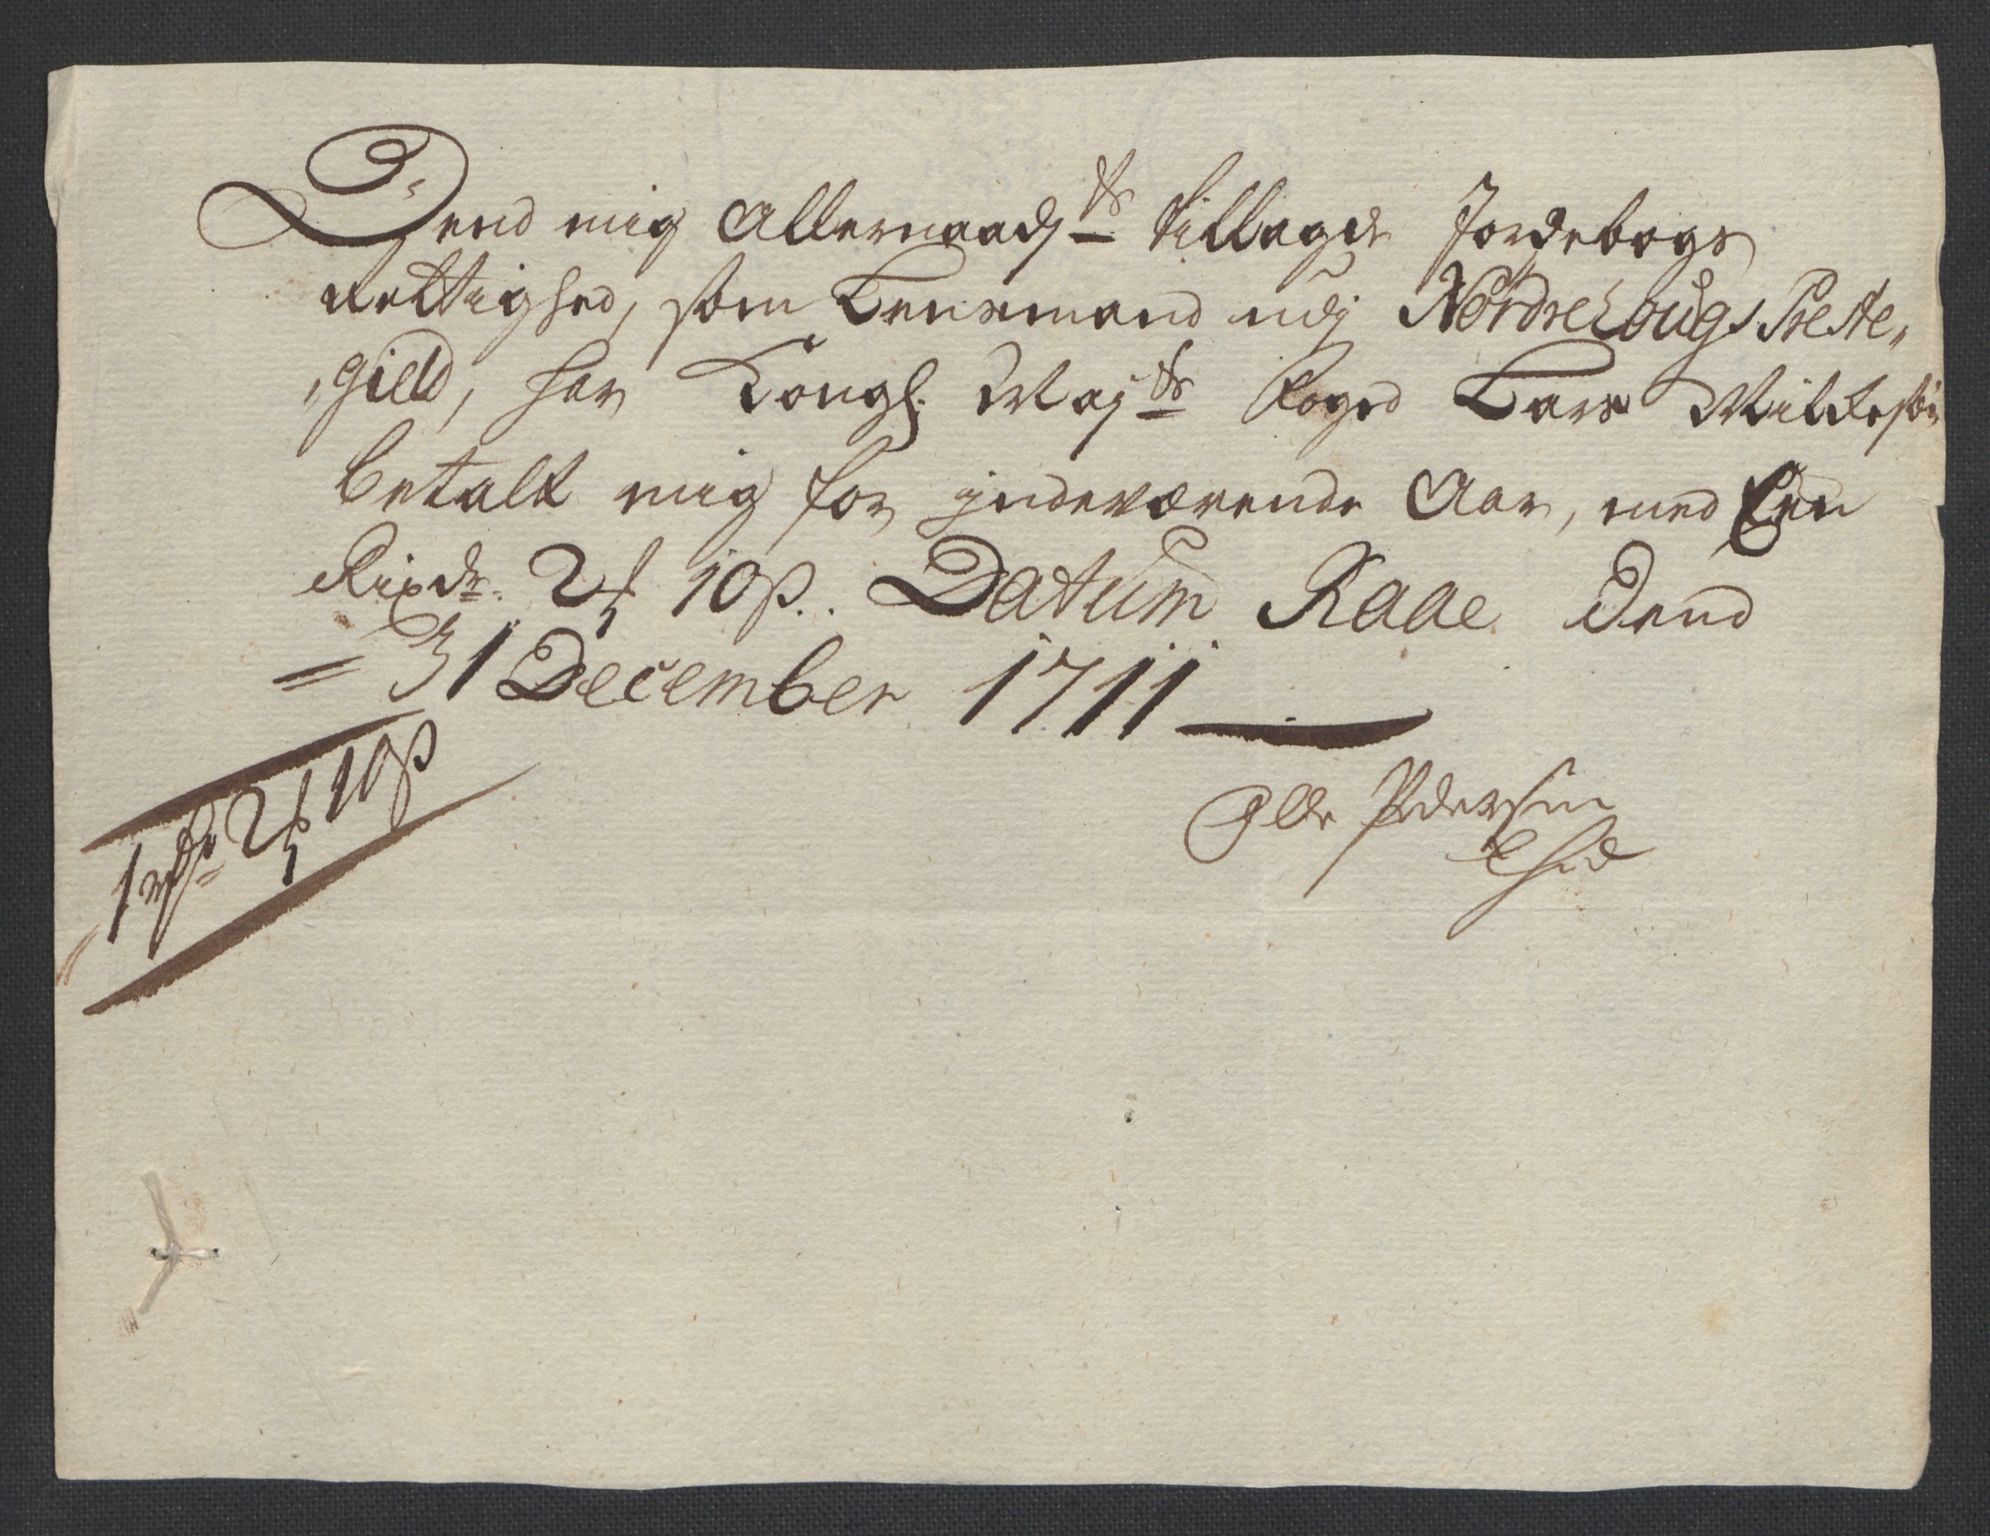 Dend mig Allernaadgste tillagde Jordebogs
Rettighed, som Lensmand udj Nordre Lougs Preste,
,gield, har Kongl. Majts foged Lars Mildesøn
betalt mig for jndeværende Aar, med Een
Rixdr. 2 ₰ 10 ß. Datum Raae Dend
= 31 December 1711
1 rdr 2 ₰ 10 ß
Olle Pedersen